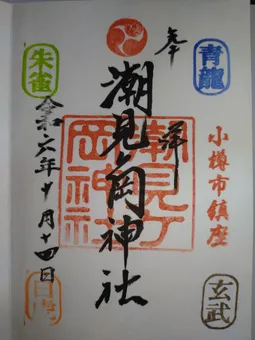 青龍
小樽市鎮座
玄武
奉拝
潮見ヶ岡神社
潮見ヶ
岡神社
朱雀
令和六年十月十四日
白虎